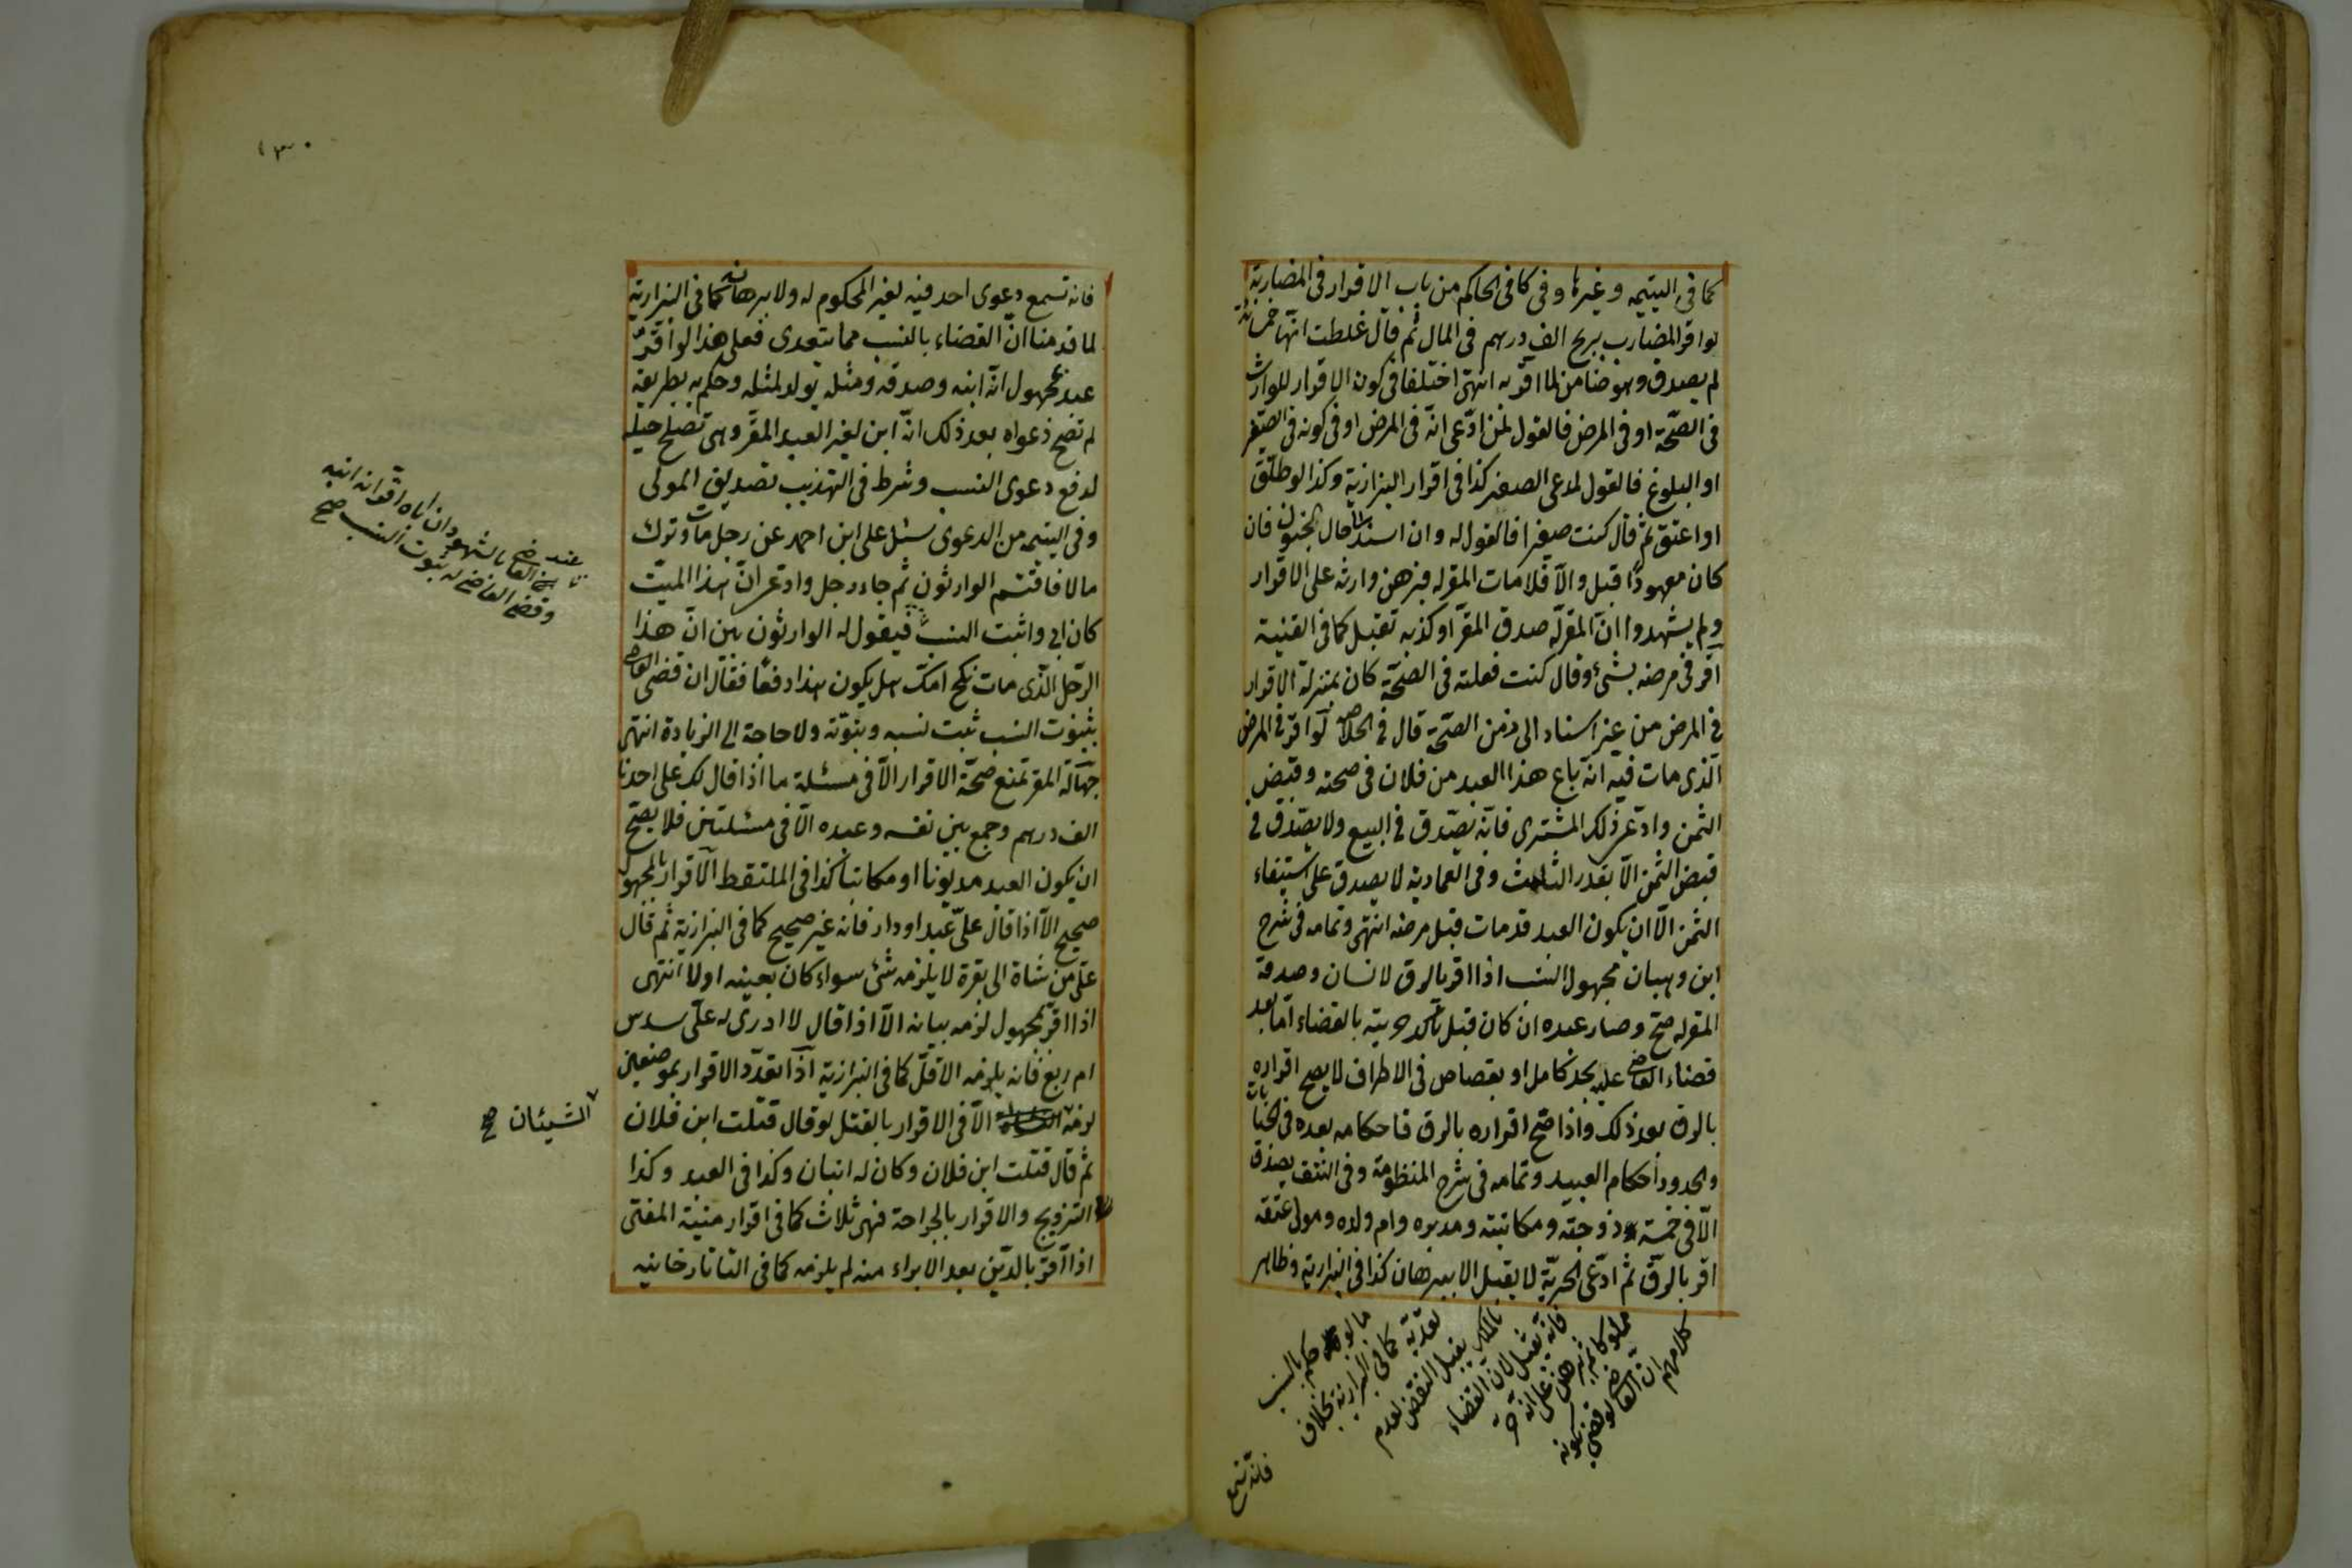 كما فى اليتيمه وغيرها وفى كافى الحاكم من باب الاقرار فى المضاربة
لواقر المضارب بربح الف درهم فى المال ثم قال غلطت انها خمسمائة
لم يصدق وهو ضامن لما اقر به انتهى اختلفا فى كون الاقرار للوارث
فى الصحة او فى المرض فالقول لمن ادعى انه فى المرض او فى كونه فى الصغر
او البلوغ فالقول لمدعى الصغر كذا فى اقرار البزازية وكذا لو طلق
او اعتق ثم قال كنت صغيرا فالقول له وان اسند الى حال الجنون فان
كان معهودا قبل والا فلا مات المقر له فبرهن وارثه على الاقرار
ولم يشهدوا ان المقر له صدق المقر او كذبه تقبل كما فى القنية
اقر فى مرضه بشئ وقال كنت فعلته فى الصحة كان بمنزلة الاقرار
فى المرض من غير اسناد الى زمن الصحة قال فى الخلاصه لو اقر فى المرض
الذى مات فيه انه باع هذا العبد من فلان فى صحته وقبض
الثمن وادعى ذلك المشترى فانه يصدق فى البيع ولا يصدق فى
قبض الثمن الا بقدر الثلث وفى العمادية لا يصدق على استيفاء
الثمن الا ان يكون العبد قد مات قبل مرضه انتهى وتمامه فى شرح
ابن وهبان مجهول النسب اذا اقر بالرق لانسان وصدقه
المقر له صح وصار عبده ان كان قبل تأكد حريته بالقضاء اما بعد
قضاء القاضى عليه بحد كامل او بقصاص فى الاطراف لا يصح اقراره
بالرق بعد ذلك واذا صح اقراره بالرق فاحكامه بعده فى الجنايات
والحدود احكام العبيد وتمامه فى شرح المنظومة وفى النتف يصدق
الا فى خمسة زوجته ومكاتبته ومدبره وام ولده ومولى عتقه
اقر بالرق ثم ادعى الحرية لا يقبل الا ببرهان كذا فى البزازية وظاهر
كلامهم ان القاضى لو قضى بكونه
مملوكا ثم برهن على انه حر
فانه تقبل لان القضاء
بالملك يقبل النقض لعدم
تعديه كما فى البزازية بخلاف
ما لو حكم بالنسب
فانه تسمع
١٣٠
فانه تسمع دعوى احد فيه لغير المحكوم له ولا برهانه كما فى البزازية
لما قدمنا ان القضاء بالنسب مما يتعدى فعلى هذا لو اقر
عبد لمجهول انه ابنه وصدقه ومثله يولد لمثله وحكم به بطريقه
لم تصح دعواه بعد ذلك انه ابن لغير العبد المقر وهى تصلح حيلة
لدفع دعوى النسب وشرط فى التهذيب تصديق المولى
وفى اليتيمه من الدعوى سئل على ابن احمد عن رجل مات وترك
مالا فاقتسم الوارثون ثم جاء رجل وادعى ان هذا الميت
كان ابى واثبت النسب فيقول له الوارثون بين ان هذا
الرجل الذى مات نكح امك هل يكون هذا دفعا فقال ان قضى القاضى
بثبوت النسب ثبت نسبه وبنوته ولا حاجة الى الزيادة انتهى
جهالة المقر تمنع صحة الاقرار الا فى مسئلة ما اذا قال لك على احدنا
الف درهم وجمع بين نفسه وعبده الا فى مسئلتين فلا يصح
ان يكون العبد مديونا او مكاتبا كذا فى الملتقط الاقرار بالمجهول
صحيح الا اذا قال على عبد او دار فانه غير صحيح كما فى البزازية ثم قال
على من شاة الى بقرة لا يلزمه شئ سواء كان بعينه اولا انتهى
اذا اقر بمجهول لزمه بيانه الا اذا قال لا ادرى له على سدس
ام ربع فانه يلزمه الاقل كما فى البزازية اذا تعدد الاقرار بموضعين
لزمه الا فى الاقرار بالقتل لو قال قتلت ابن فلان
ثم قال قتلت ابن فلان وكان له ابنان وكذا فى العبد وكذا
التزويج والاقرار بالجراحة فهى ثلاث كما فى اقرار منية المفتى
اذا اقر بالدين بعد الابراء منه لم يلزمه كما فى التاتارخانيه
عند القاضى بالشهود ان اباه اقر انه ابنه
وقضى القاضى له بثبوت النسب صح
الشيئان صح